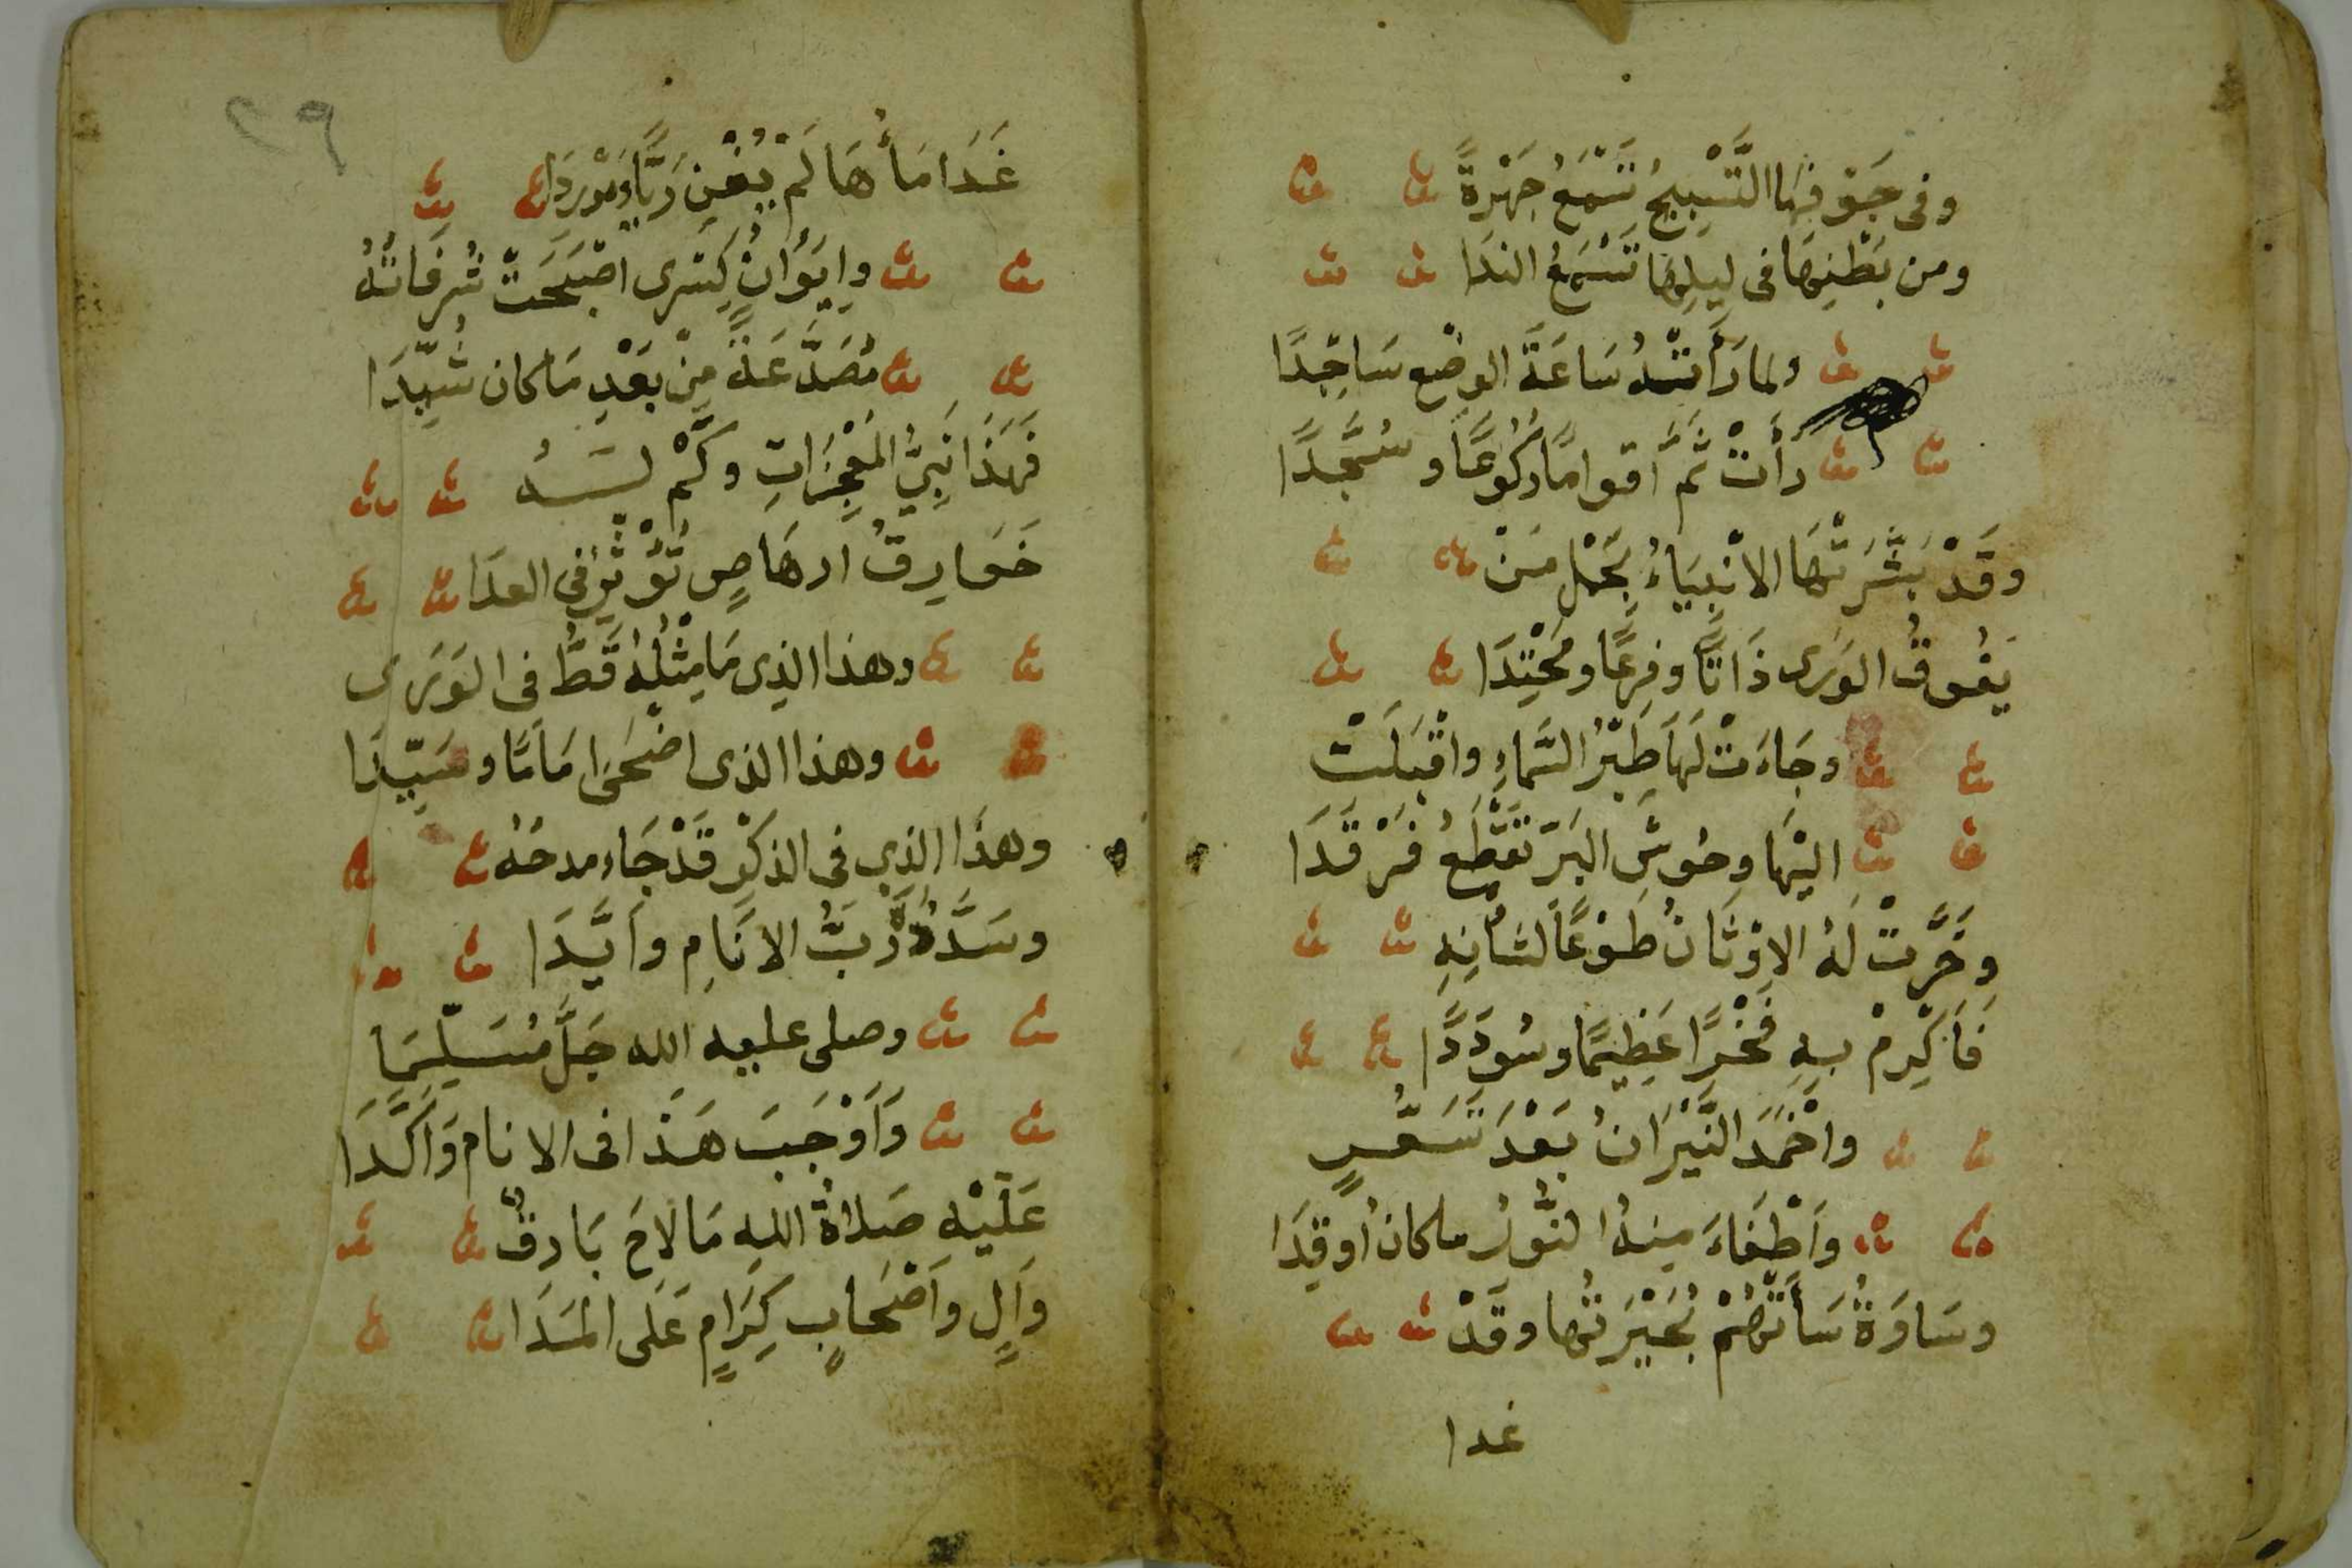 وفى جَوْفِهَا التَّسْبِيحُ تَسْمَعُ جَهْرَةً
ومن بَطْنِهَا فى ليلِهَا تَسْمَعُ الندَا
ولما رَأَتْهُ سَاعَةَ الوضْعِ سَاجِدًا
رَأَتْ ثَمَّ أقوامًا رُكُوعًا وسُجَّدًا
وقَدْ بَشَّرَتْهَا الانْبِيَاءُ بِحَمْلِ مَنْ
يَفُوقُ الوَرَى ذَاتًا وفِرعًا ومَحْتِدَا
وجَاءَتْ لَهَا طَيْرُ السَّمَاءِ واقْبَلَتْ
اليْهَا وحُوشِ البَرّ تَقْطَعُ فَرْقَدَا
وخَرَّتْ لَهُ الاوْثَانُ طَوْعًا لشأنِهِ
فَأَكْرِمْ بِهِ فَخْرًا عَظِيمًا وسُودَدًا
واخْمَدَ النِّيْرَانُ بَعْدَ تَسَعُّرٍ
وَاَطْفَاءَ مِنهُ النُّورُ ماكانُ اُوقِدَا
وسَاوَةُ سَأَتْهُمْ بُحَيْرَتُها وقَدْ
غدا
٢٩
غَدَا مَأُهَا لَمْ يُغْنِ رَيًّا ومَوْرِدَا
وإِيْوَانُ كِسْرى اصْبَحَتْ شُرفَاتُهُ
مُصَدَّعَةً مِنْ بَعْدِ مَا كان شُيِّدَا
فَهَذَا نَبِيُّ المُعْجِزَاتِ وكَمْ لَهُ
خَوَارِقُ ارهَاصٍ تُؤْثِرُ فى العدَا
وهذا الذِى مَا مِثْلُهُ قَطُّ فى الوَرَى
وهذا الذى اضْحَى امَامًا وسَيِّدَا
وهذَا الذِى فى الذِكْرِ قَدْ جَاءَ مدحُهُ
وسَدَّدهُ رَبُّ الانَامِ وأيَّدَا
وصلى عليه الله جَلَّ مُسَلِّمَا
وَأَوْجَبَ هَذَا فى الانام وَأَكَّدَا
عَلَيْهِ صَلاةُ اللهِ مَا لاحَ بَارقٌ
وآلٍ وأصْحَابٍ كِرَامٍ عَلَى المَدَا